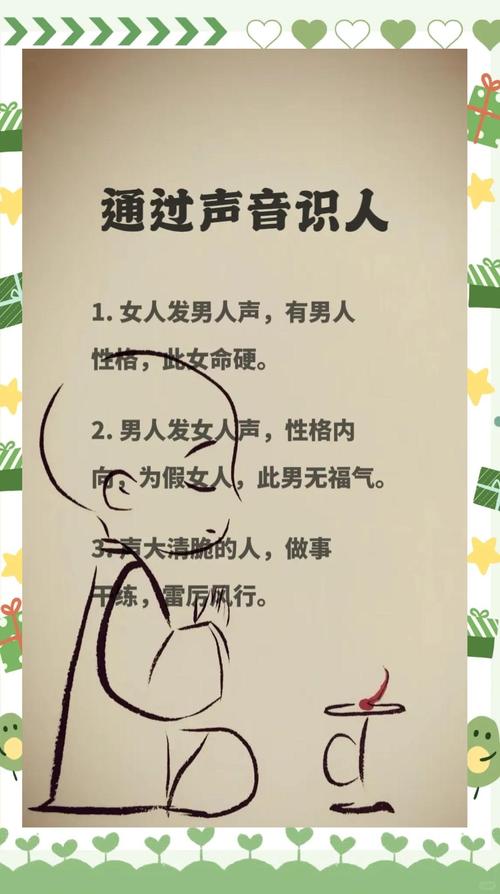 通过声音识人
1. 女人发男人声，有男人
性格，此女命硬。
2. 男人发女人声，性格内
向，为假女人，此男无福气。
3. 声大清脆的人，做事
干练，雷厉风行。